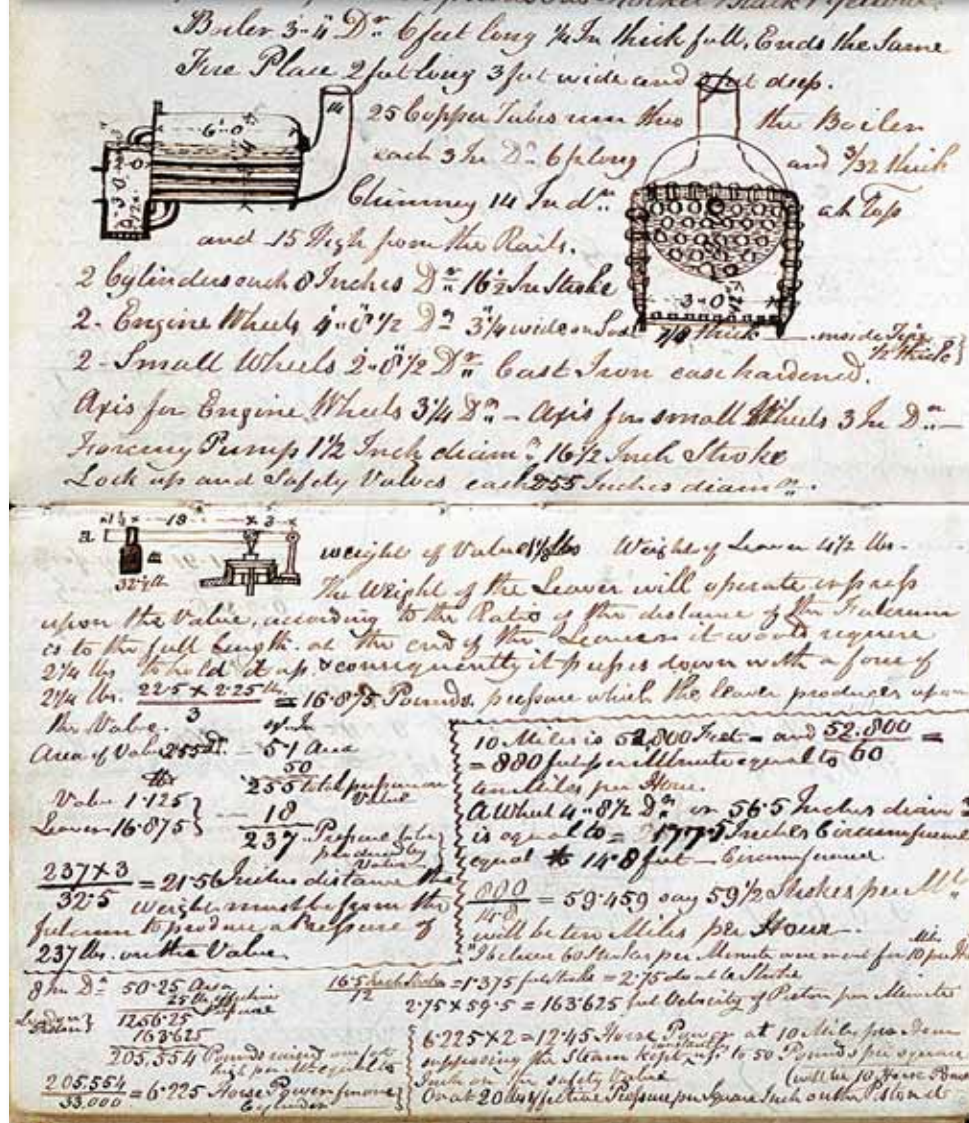 Boiler 3"4 Dr. 6 feet long 1/4 In thick full, Ends the Same
Fire Place 2 feet long 3 feet wide and 3 feet deep.
25 Copper Tubes run thro the Boiler
each 3 In Dr. 6 ft long and 3/32 thick
Chimney 14 In dr. at Top
and 15 High from the Rails.
6"-0
14
3-0
3-0
2 Cylinders each 8 Inches Dr. 16 1/2 In Stroke
7/8 thick inside
1/2 thick
2 - Engine Wheels 4"8 1/2 Dr. 3 1/4 wide on
2 - Small Wheels 2"8 1/2 Dr. Cast Iron case hardened.
Axis for Engine Wheels 3 1/4 Dr. - Axis for small Wheels 3 In Dr.
Forcing Pump 1 1/2 Inch diamr. 16 1/2 Inch Stroke
Lock up and Safety Valves each 2.55 Inches diamr.
18 3
a
weight of Valve 1 1/8 lbs Weight of Leaver 4 1/2 lbs.
The Weight of the Leaver will operate
upon the Valve, according to the Ratio of the distance of the Fulcrum
is to the full Length. at the end of the Leaver it would require
2 1/4 lbs to hold it up & consequently it presses down with a force of
2 1/4 lbs. 22.5 X 2.25 = 16.875 Pounds pressure which the leaver produces upon
3
the Valve.
Area of Valve 2.55 = 51 Area
50
255 total pressure on Valve
lbs
Valve 1.125 }
Leaver 16.875 } - 18
237 - Pressure to be produced by
237 X 3 = 21.56 Inches distance the
32.5 weight must be from the
fulcrum to produce a Pressure of
237 lbs. on the Valve
10 Miles is 52,800 Feet - and 52.800 =
60
= 880 feet per Minute equal to
ten Miles per Hour.
A Wheel 4"8 1/2 Dr. or 56.5 Inches diam
is equal to = 177.5 Inches Circumference
equal to 14.8 feet - Circumference
880
14.8 = 59.459 say 59 1/2 Strokes per
will be ten Miles per Hour.
I believe 60 Strokes per Minute for 10 Miles per
8 In Dr. 50.25 Area
25 lbs effective Pressure
1256.25
163.625
205,554 Pounds raised one foot high per
205,554 = 6.225 Horse Power for one Cylinder
33,000
16.5 Inch Stroke = 1.375 feet stroke = 2.75 double Stroke
12
2.75 X 59.5 = 163.625 feet Velocity of Piston per Minute
6.225 X 2 = 12.45 Horse Power at 10 Miles per Hour
supposing the Steam constantly kept up to 50 Pounds per square
Inch on the safety Valve (will be 10 Horse Power
Or at 20 lbs effective Pressure per Square Inch on the Piston it